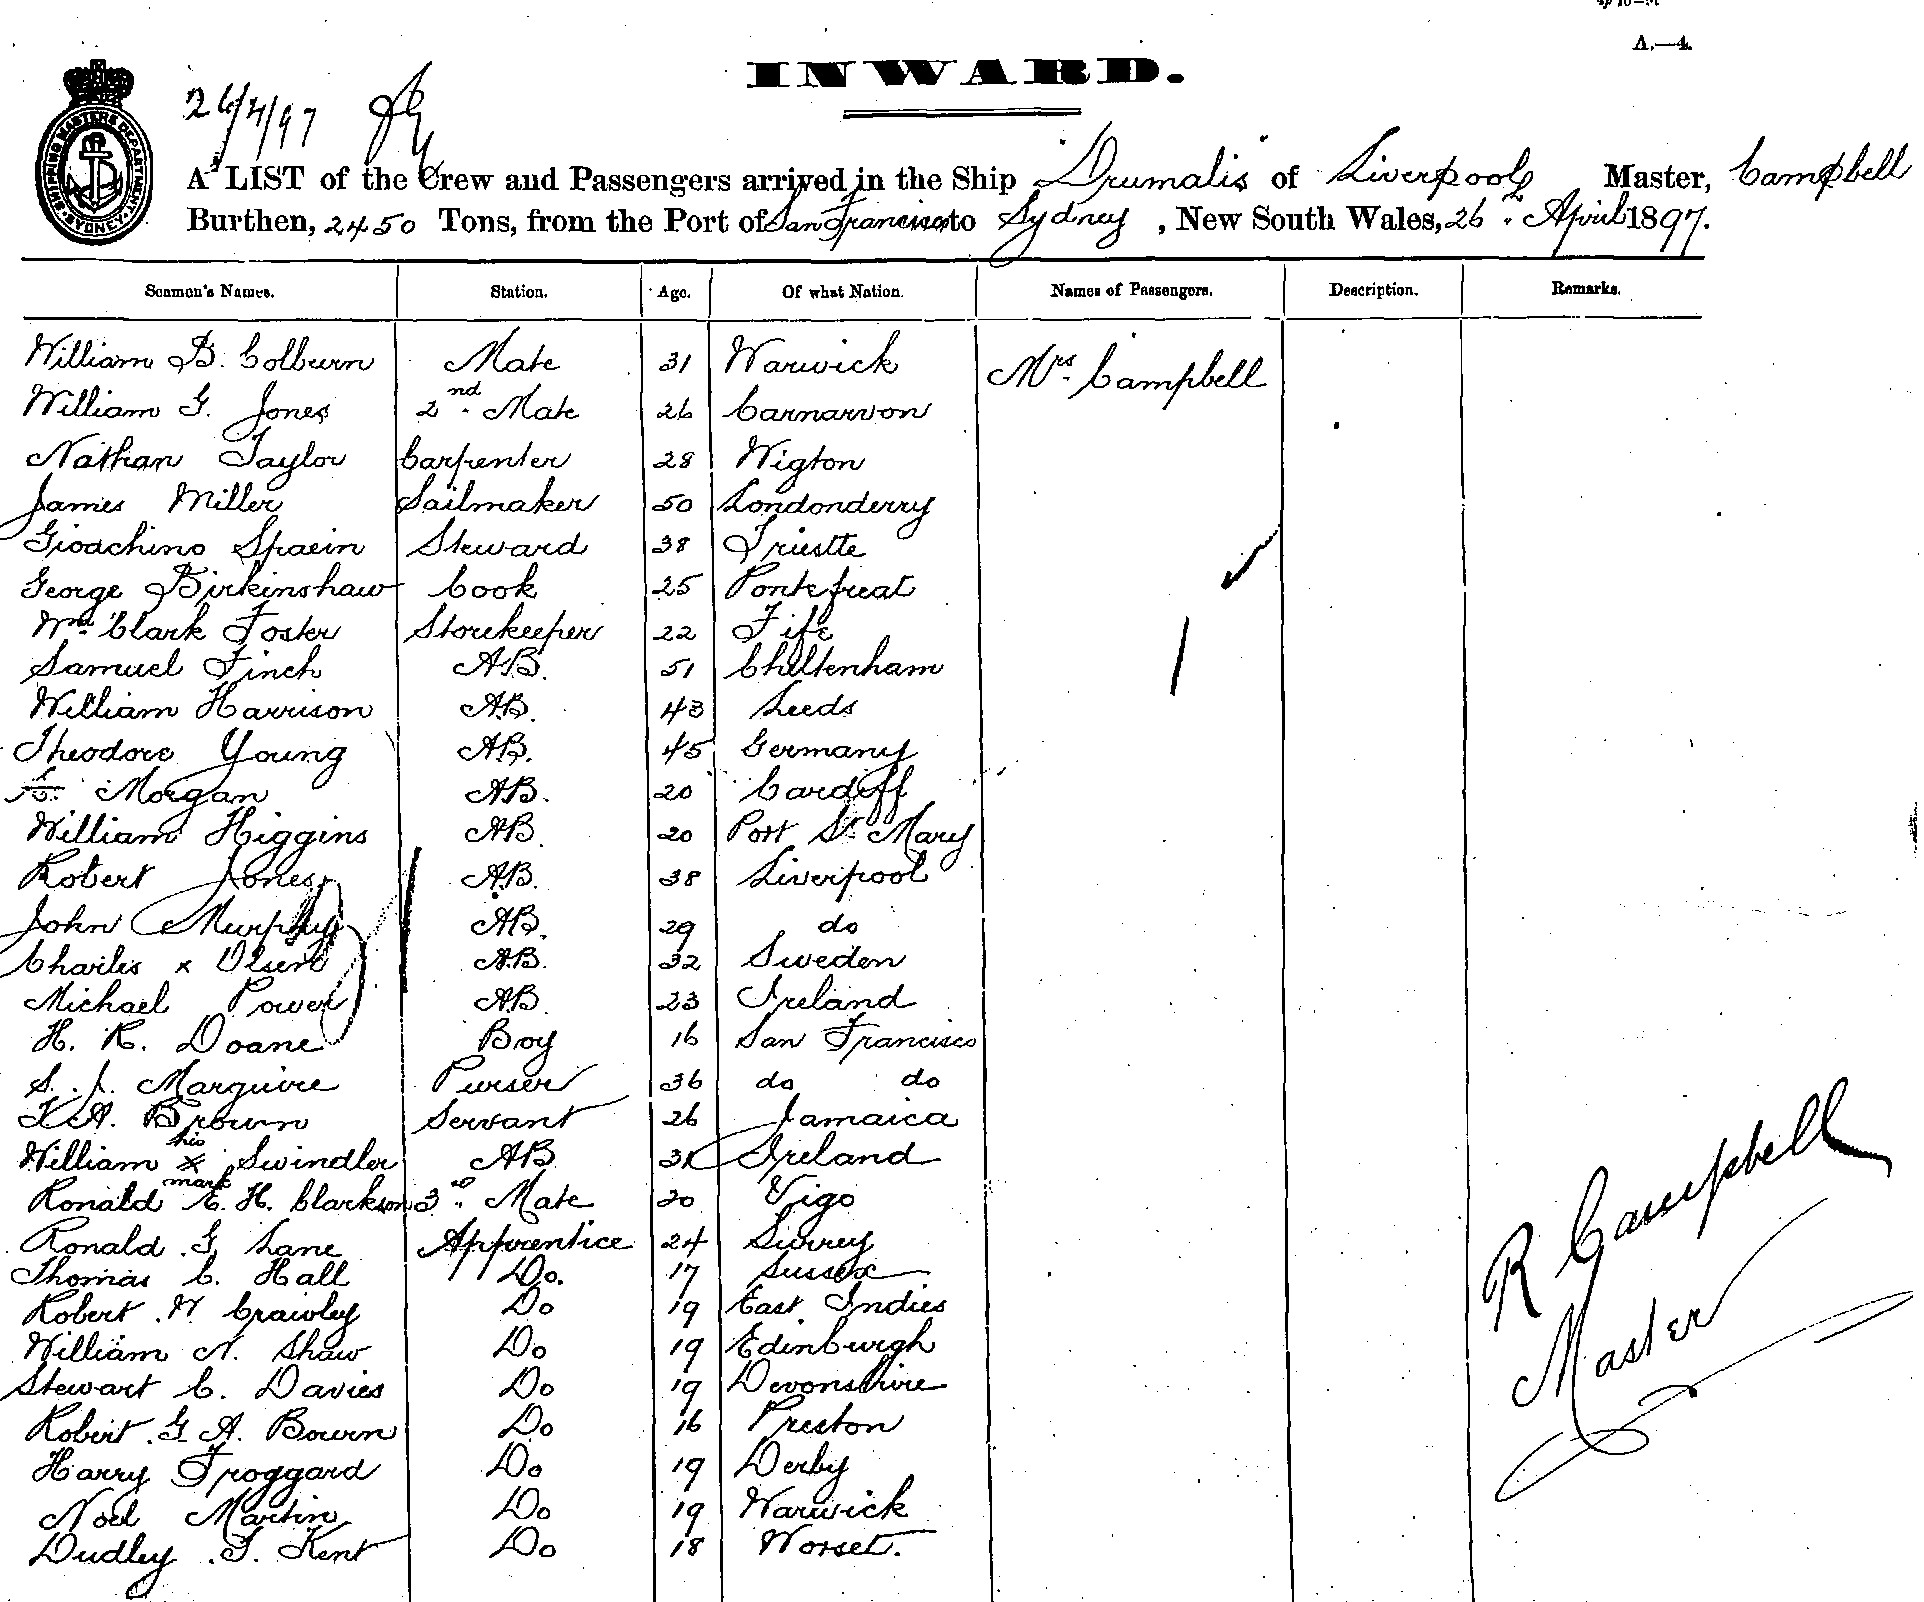 A.—4.
INWARD.
26/4/97
SHIPPING MASTERS DEPARTMENT SYDNEY
A LIST of the Crew and Passengers arrived in the Ship Drumalis of Liverpool Master, Campbell
Burthen, 2450 Tons, from the Port of San Francisco to Sydney, New South Wales, 26 April 1897.
Seamen's Names. Station. Age. Of what Nation. Names of Passengers. Description. Remarks.
William B. Colburn Mate 31 Warwick Mrs. Campbell
William G. Jones 2nd. Mate 26 Carnarvon
Nathan Taylor Carpenter 28 Wigton
James Miller Sailmaker 50 Londonderry
Gioachino Spaein Steward 38 Triestte
George Birkinshaw Cook 25 Pontefreat
Wm. Clark Foster Storekeeper 22 Fife
Samuel Finch A.B. 51 Cheltenham
William Harrison A.B. 43 Leeds
Theodore Young A.B. 45 Germany
Morgan A.B. 20 Cardiff
William Higgins A.B. 20 Port St. Mary
Robert Jones A.B. 38 Liverpool
John Murphy A.B. 29 do
Charles x Olsen A.B. 32 Sweden
Michael Power A.B. 23 Ireland
H. R. Doane Boy 16 San Francisco
S. J. Marguire Purser 36 do do
Brown Servant 26 Jamaica
William his x mark Swindler A.B. 31 Ireland
Ronald E. H. Clarkson 3rd. Mate 20 Vigo
Ronald G. Lane Apprentice 24 Surrey
Thomas C. Hall Do. 17 Sussex
Robert W Crawley Do 19 East Indies
William N. Shaw Do 19 Edinburgh
Stewart C. Davies Do 19 Devonshire
Robert G A. Bown Do 16 Preston
Harry Froggard Do 19 Derby
Noel Martin Do 19 Warwick
Dudley Kent Do 18 Worset.
R Campbell
Master